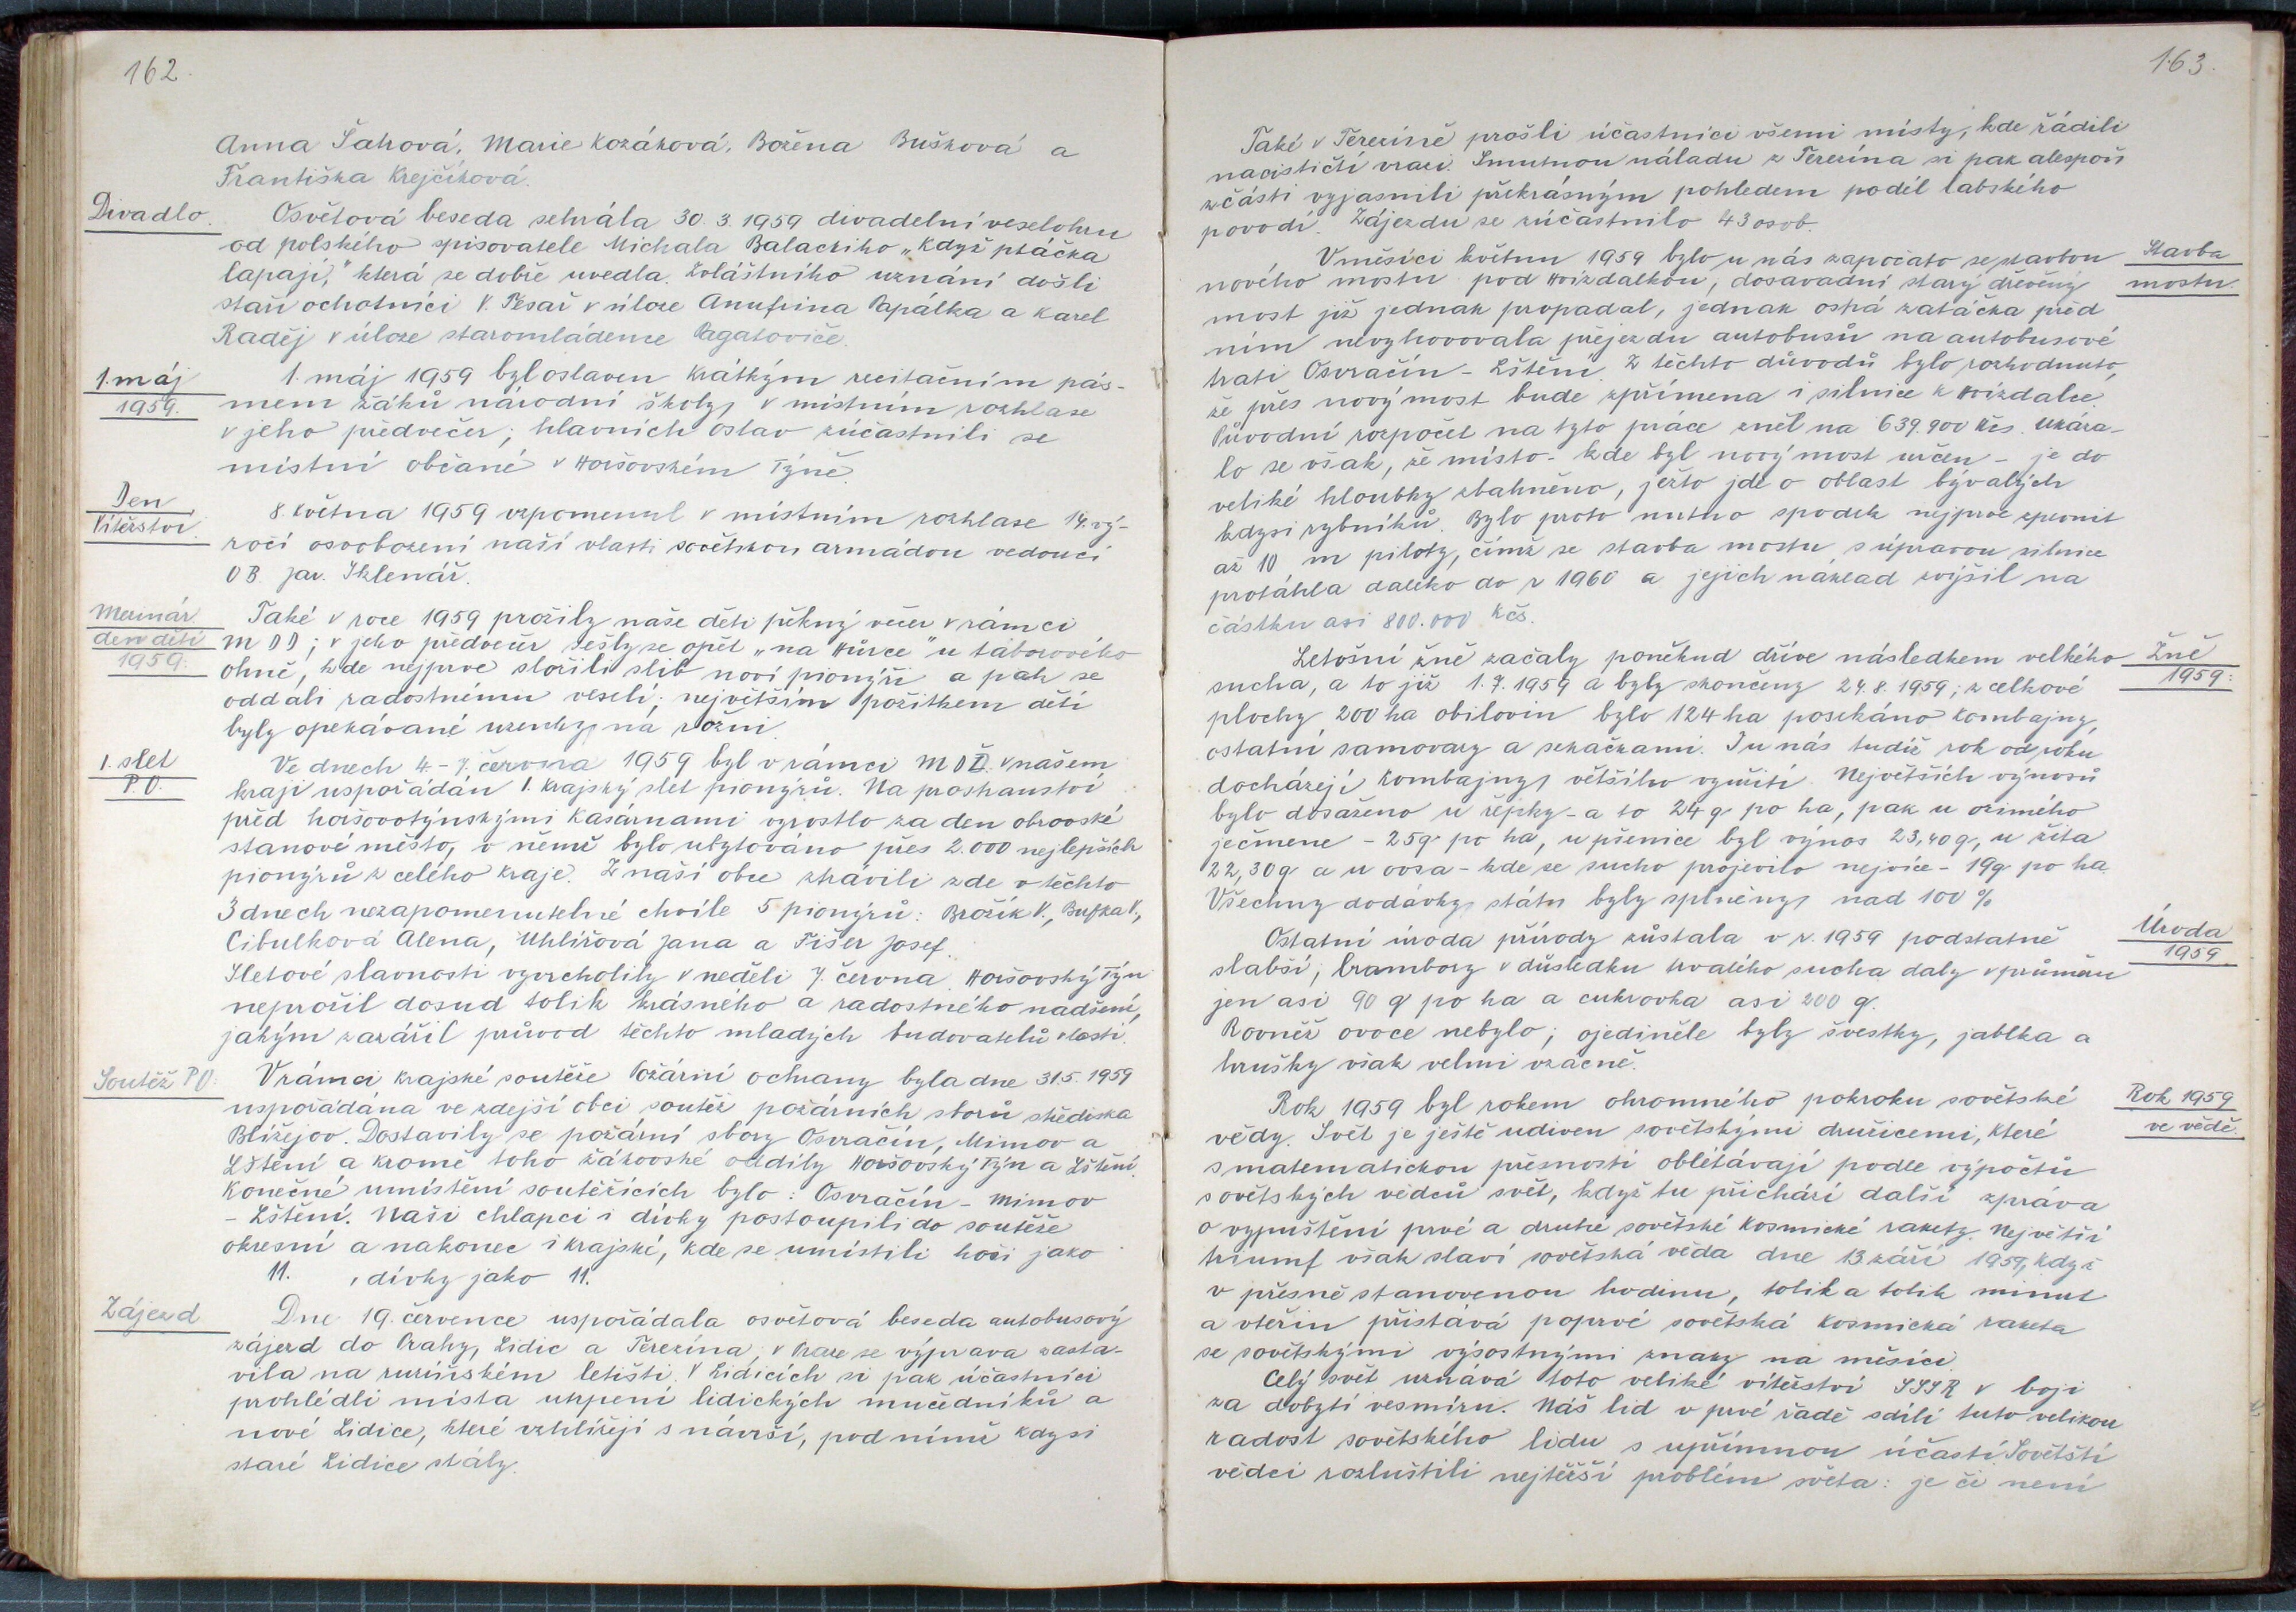 162.
Anna Šahová, Marie Kozáková, Božena Bušková a
Františka Krejčíková.
Divadlo.
Osvětová beseda sehrála 30. 3. 1959 divadelní veselohru
od polského spisovatele Michala Balackiho „Když ptáčka
lapají," která se dobře uvedla. Zvláštního uznání došli
staří ochotníci V. Tesař v úloze Anufrina Papálka a Karel
Raděj v úloze staromládence Pagatoviče.
1. máj
1959.
1. máj 1959 byl oslaven krátkým recitačním pás-
mem žáků národní školy v místním rozhlase
v jeho předvečer; hlavních oslav zúčastnili se
místní občané v Horšovském Týně.
Den
Vítězství.
8. května 1959 vzpomenul v místním rozhlase 14. vý-
ročí osvobození naší vlasti sovětskou armádou vedoucí
OB. Jar. Sklenář.
Mezinár.
den dětí
1959.
Také v roce 1959 prožily naše děti pěkný večer v rámci
MDD; v jeho předvečer sešly se opět „na Hůrce" u táborového
ohně, kde nejprve složili slib noví pionýři a pak se
oddali radostnému veselí; největším požitkem dětí
byly opekávané uzenky na rožni.
1. slet
PO.
Ve dnech 4. - 7. června 1959 byl v rámci MDD. v našem
kraji uspořádán 1. krajský slet pionýrů. Na prostranství
před horšovotýnskými kasárnami vyrostlo za den obrovské
stanové město, v němž bylo ubytováno přes 2.000 nejlepších
pionýrů z celého kraje. Z naší obce strávili zde v těchto
3 dnech nezapomenutelné chvíle 5 pionýrů: Brožík V., Bufka V.,
Cibulková Alena, Uhlířová Jana a Fišer Josef.
Sletové slavnosti vyvrcholily v neděli 7. června. Horšovský Týn
neprožil dosud tolik krásného a radostného nadšení,
jakým zazářil průvod těchto mladých budovatelů vlasti.
Soutěž PO.
V rámci krajské soutěže Požární ochrany byla dne 31.5. 1959
uspořádána ve zdejší obci soutěž požárních sborů střediska
Blížejov. Dostavily se požární sbory Osvračín, Mimov a
Lštění a kromě toho žákovské oddíly Horšovský Týn a Lštění.
Konečné umístění soutěžících bylo: Osvračín - Mimov
- Lštění. Naši chlapci i dívky postoupili do soutěže
okresní a nakonec i krajské, kde se umístili hoši jako
11. , dívky jako 11.
Zájezd
Dne 19. července uspořádala osvětová beseda autobusový
zájezd do Prahy, Lidic a Terezína; v Praze se výprava zasta-
vila na ruzyňském letišti. V Lidicích si pak účastníci
prohlédli místa utrpení lidických mučedníků a
nové Lidice, které vzhlížejí s návrší, pod nímž kdysi
staré Lidice stály.
163.
Také v Terezíně prošli účastníci všemi místy, kde řádili
nacističtí vrazi. Smutnou náladu z Terezína si pak alespoň
zčásti vyjasnili překrásným pohledem podél labského
povodí. Zájezdu se zúčastnilo 43 osob.
Stavba
mostu.
V měsíci květnu 1959 bylo u nás započato se stavbou
nového mostu pod Hvízdalkou, dosavadní starý dřevěný
most již jednak propadal, jednak ostrá zatáčka před
ním nevyhovovala přejezdu autobusů na autobusové
trati Osvračín - Lštění. Z těchto důvodů bylo rozhodnuto,
že přes nový most bude zpřímena i silnice k Hvízdalce.
Původní rozpočet na tyto práce zněl na 639.900 Kčs. Ukáza-
lo se však, že místo - kde byl nový most určen - je do
veliké hloubky zbahněno, ježto jde o oblast bývalých
kdysi rybníků. Bylo proto nutno spodek nejprve zpevnit
až 10 m piloty, čímž se stavba mostu s úpravou silnice
protáhla daleko do r. 1960 a jejich náklad zvýšil na
částku asi 800.000 Kčs.
Žně
1959.
Letošní žně začaly poněkud dříve následkem velkého
sucha, a to již 1. 7. 1959 a byly skončeny 24. 8. 1959; z celkové
plochy 200 ha obilovin bylo 124 ha posekáno kombajny,
ostatní samovazy a sekačkami. I u nás tudíž rok od roku
docházejí kombajny většího využití. Největších výnosů
bylo dosaženo u řepky - a to 24 q po ha, pak u ozimého
ječmene - 25 q po ha, u pšenice byl výnos 23,40 q, u žita
22,30 q a u ovsa - kde se sucho projevilo nejvíce - 19 q po ha.
Všechny dodávky státu byly splněny nad 100 %
Úroda
1959.
Ostatní úroda přírody zůstala v r. 1959 podstatně
slabší; brambory v důsledku trvalého sucha daly v průměru
jen asi 90 q po ha a cukrovka asi 200 q.
Rovněž ovoce nebylo; ojediněle byly švestky, jablka a
hrušky však velmi vzácně.
Rok 1959
ve vědě.
Rok 1959 byl rokem ohromného pokroku sovětské
vědy. Svět je ještě udiven sovětskými družicemi, které
s matematickou přesností oblétávají podle výpočtů
sovětských vědců svět, když tu přichází další zpráva
o vypuštění prvé a druhé sovětské kosmické rakety. Největší
triumf však slaví sovětská věda dne 13. září 1959, když
v přesně stanovenou hodinu, tolik a tolik minut
a vteřin přistává poprvé sovětská kosmická raketa
se sovětskými výsostnými znaky na měsíci.
Celý svět uznává toto veliké vítězství SSSR v boji
za dobytí vesmíru. Náš lid v prvé řadě sdílí tuto velikou
radost sovětského lidu s upřímnou účastí. Sovětští
vědci rozluštili nejtěžší problém světa: je či není